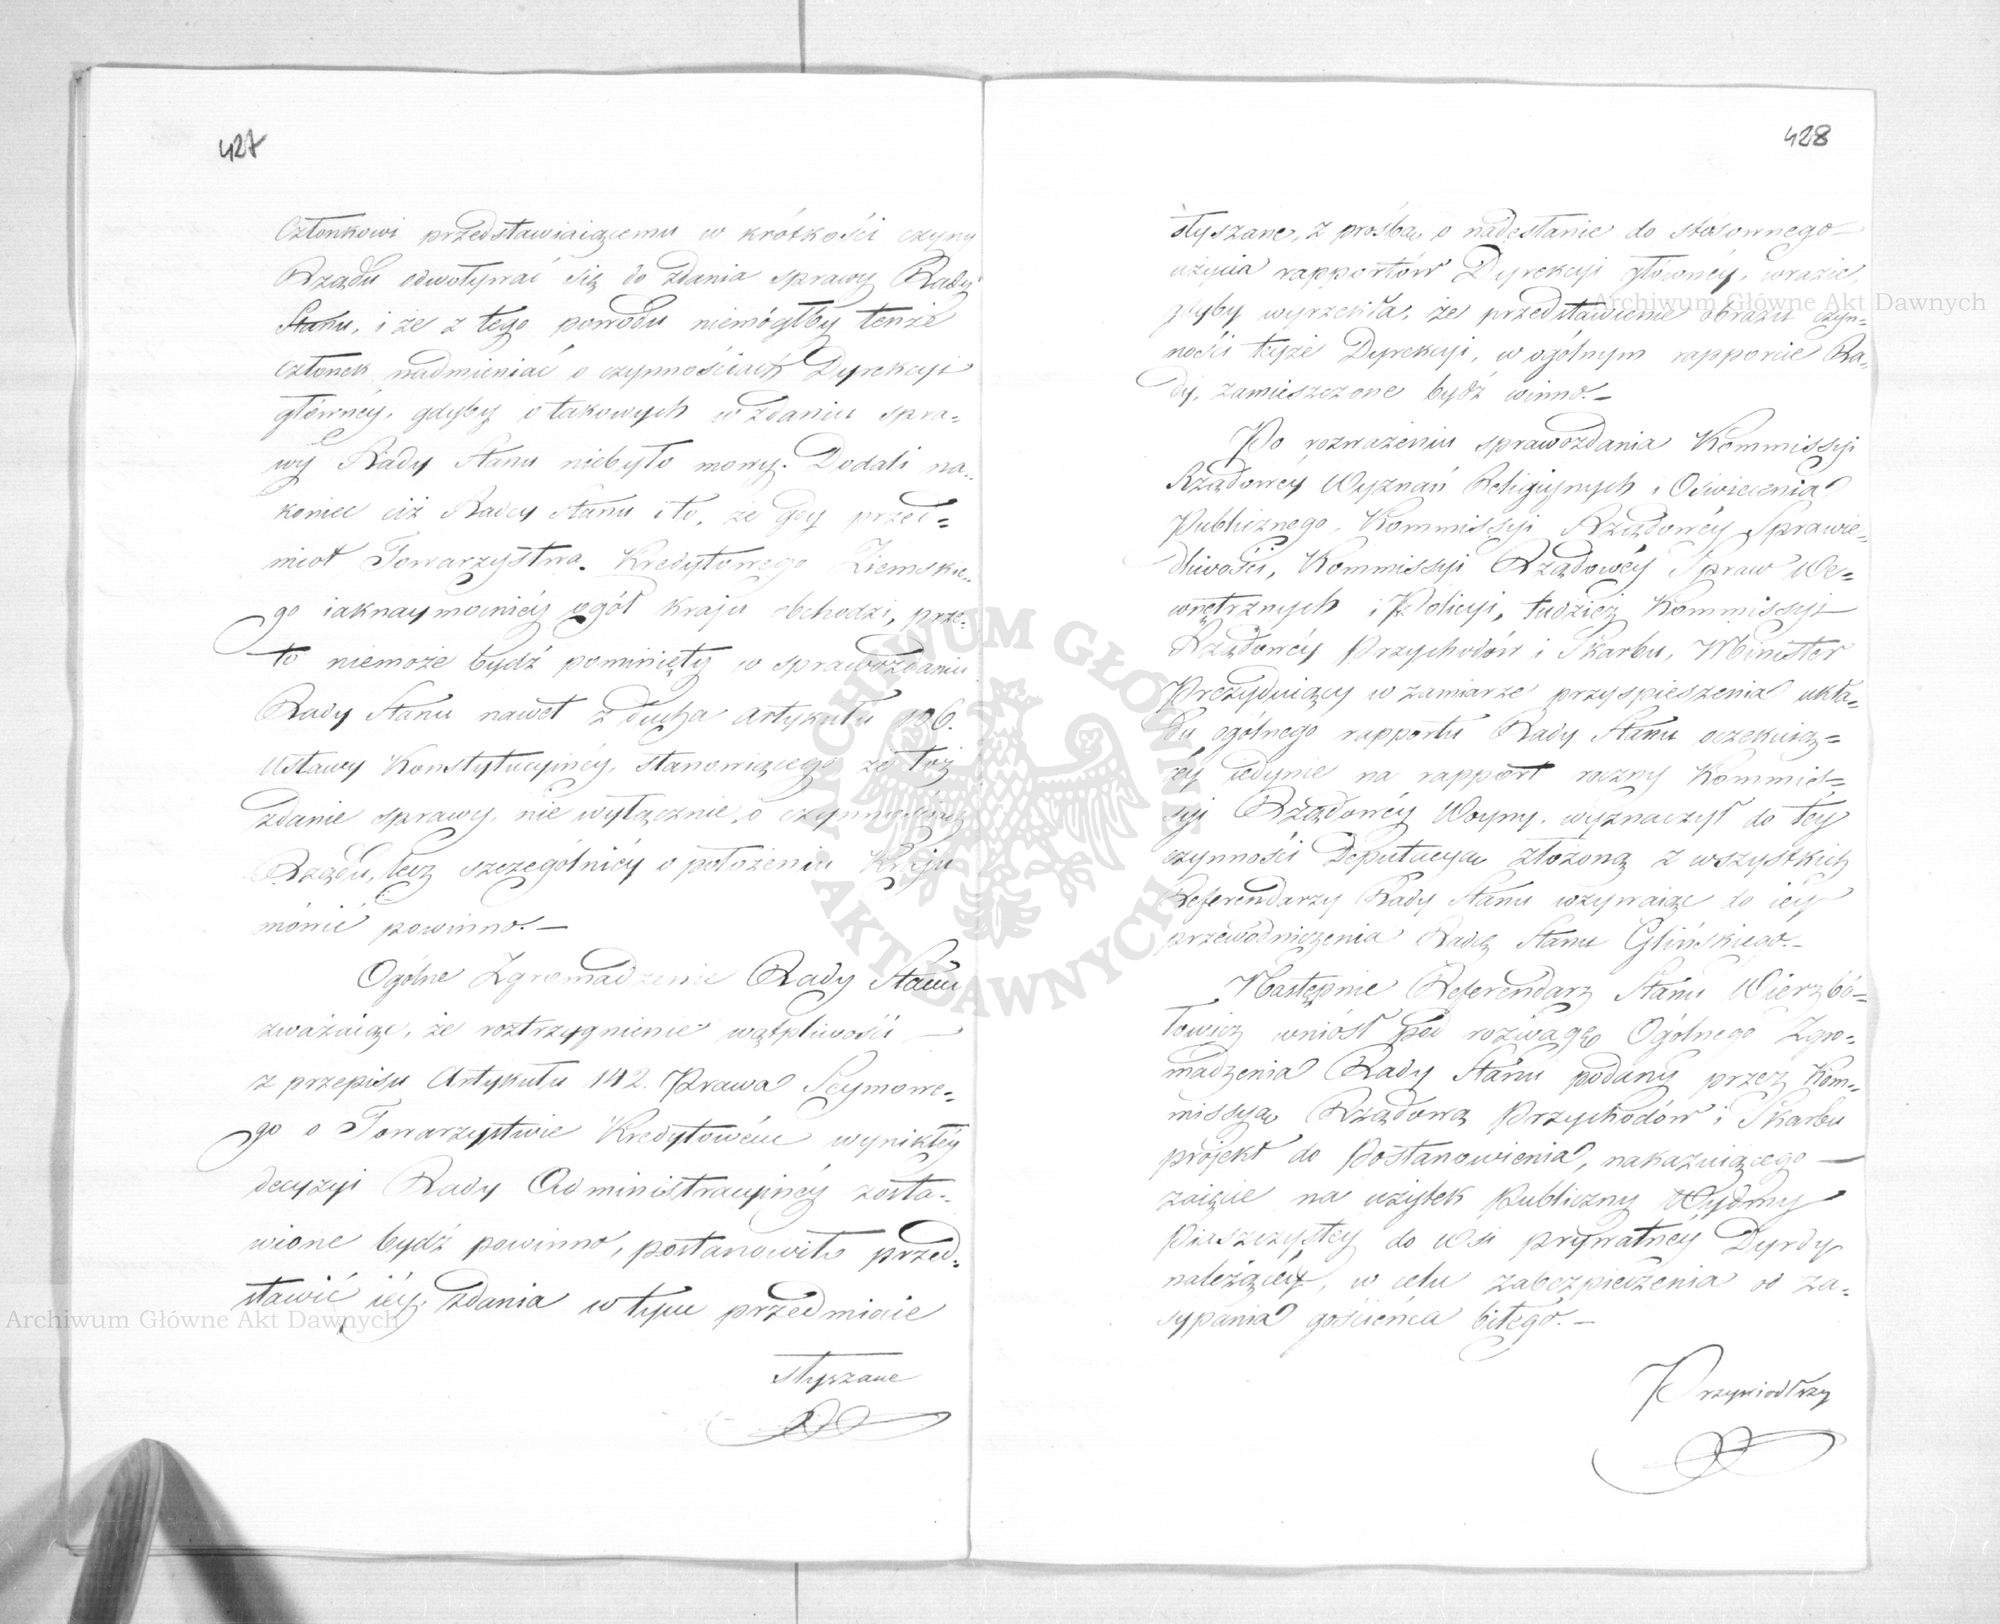 427
Członkowi przedstawiaiącemu w krótkości czyny
Rządu odwoływać się do zdania sprawy Rady
Stanu, i że z tego powodu niemógłby tenże
członek nadmieniać o czynnościach Dyrekcyi
głównéy, gdyby o takowych w zdaniu spra-
wy Rady Stanu niebyło mowy. Dodali na-
koniec ciż Radcy Stanu i to, że gdy przed-
miot Towarzystwa Kredytowego Ziemskie-
go iaknaymocniéy ogół kraju obchodzi, prze-
to niemoże bydź pominięty w sprawozdaniu
Rady Stanu nawet z ducha Artykułu 106.
Ustawy Konstytucyinéy, stanowiącego że toż
zdanie sprawy, nie wyłącznie o czynnościach
Rządu, lecz szczególniéy o położeniu Kraju
mówić powinno.—
Ogólne Zgromadzenie Rady Stanu
zważaiąc, że roztrzygnienie wątpliwości —
z przepisu Artykułu 142. Prawa Seymowe-
go o Towarzystwie Kredytowém wynikłéy
decyzyi Rady Administracyinéy zosta-
wione bydź powinno, postanowiło przed-
stawić iéy zdania w tym przedmiocie
słyszane
428
słyszane, z prośbą o nadesłanie do stosownego
użycia rapportów Dyrekcyi głównéy, wrazie,
gdyby wyrzekła, że przedstawienie obrazu czyn-
ności teyże Dyrekcyi, w ogólnym rapporcie Ra-
dy, zamieszczone bydź winno.—
Po rozważeniu sprawozdania Kommissyi
Rządowéy Wyznań Religiynych i Oświecenia
Publicznego, Kommissyi Rządowéy Sprawie-
dliwości, Kommissyi Rządowéy Spraw We-
wnętrznych i Policyi, tudzież Kommissyi
Rządowéy Przychodów i Skarbu, Minister
Prezyduiący w zamiarze przyspieszenia ukła-
du ogólnego rapportu Rady Stanu oczekuią-
céy iedynie na rapport roczny Kommis-
syi Rządowéy Woyny, wyznaczył do téy
czynności Deputacyą złożoną z wszystkich
Referendarzy Rady Stanu wzywaiąc do iéy
przewodniczenia Radcę Stanu Glińskiego.—
Następnie Referendarz Stanu Wierzbo-
łowicz wniósł pod rozwagę Ogólnego Zgro-
madzenia Rady Stanu podany przez Kom-
missyą Rządową Przychodów i Skarbu
projekt do Postanowienia, nakazuiącego —
zaięcie na użytek Publiczny Wydmy
Piaszczystey do Wsi prywatnéy Dyrdy
należącéy, w celu zabezpieczenia od za-
sypania gościńca bitego.—
Przywiodłszy
Archiwum Główne Akt Dawnych
Archiwum Główne Akt Dawnych
ARCHIWUM GŁÓWNE
AKT DAWNYCH